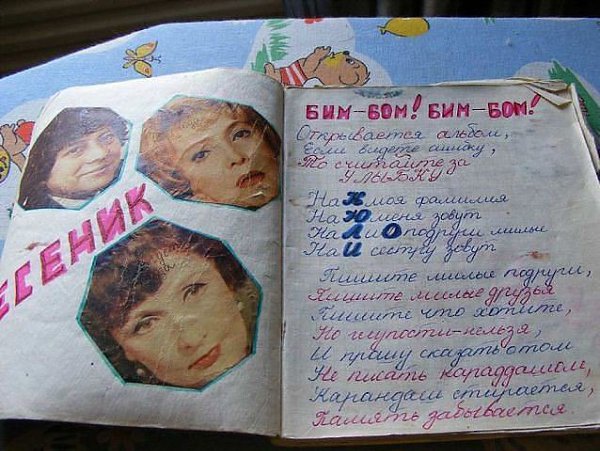 ЕСЕНИК
БИМ-БОМ! БИМ-БОМ!
Открывается альбом,
Если видете ошибку,
То считайте за
УЛЫБКУ
На К моя фамилия
На Ю меня зовут
На Л и О подруги милые
На И сестру зовут
Пишите милые подруги,
Пишите милые друзья
Пишите что хотите,
Но глупости-нельзя,
И прошу сказать о том
Не писать караддашом,
Карандаш стирается,
Память забывается.